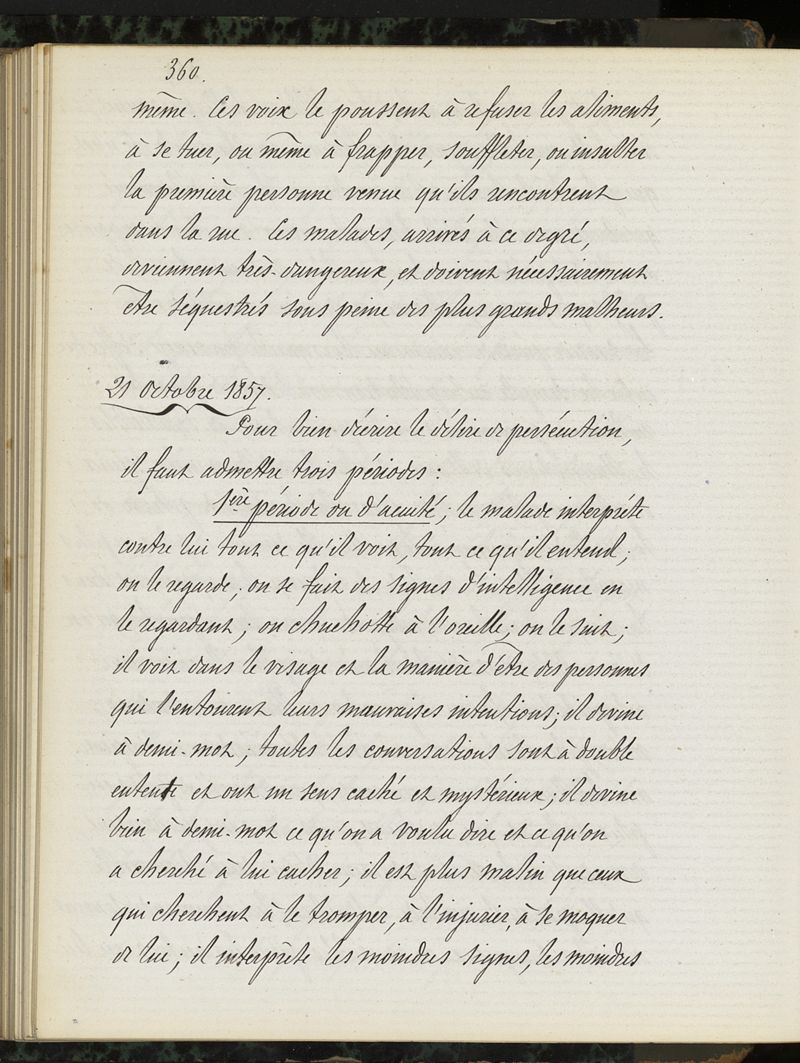 360.
même. Ces voix le poussent à refuser les aliments,
à se tuer, ou même à frapper, souffleter, ou insulter
la première personne venue qu'ils rencontrent
dans la rue. Ces malades, arrivés à ce degré,
deviennent très-dangereux, et doivent nécessairement
être séquestrés sous peine des plus grands malheurs.
21 Octobre 1857.
Pour bien décrire le délire de persécution,
il faut admettre trois périodes :
1ère période ou d'acuité ; le malade interprète
contre lui tout ce qu'il voit, tout ce qu'il entend ;
on le regarde ; on se fait des signes d'intelligence en
le regardant ; on chuchotte à l'oreille ; on le suit ;
il voit dans le visage et la manière d'être des personnes
qui l'entourent leurs mauvaises intentions ; il devine
à demi-mot ; toutes les conversations sont à double
entente et ont un sens caché et mystérieux ; il devine
bien à demi-mot ce qu'on a voulu dire et ce qu'on
a cherché à lui cacher ; il est plus malin que ceux
qui cherchent à le tromper, à l'injurier, à se moquer
de lui ; il interprète les moindres signes, les moindres